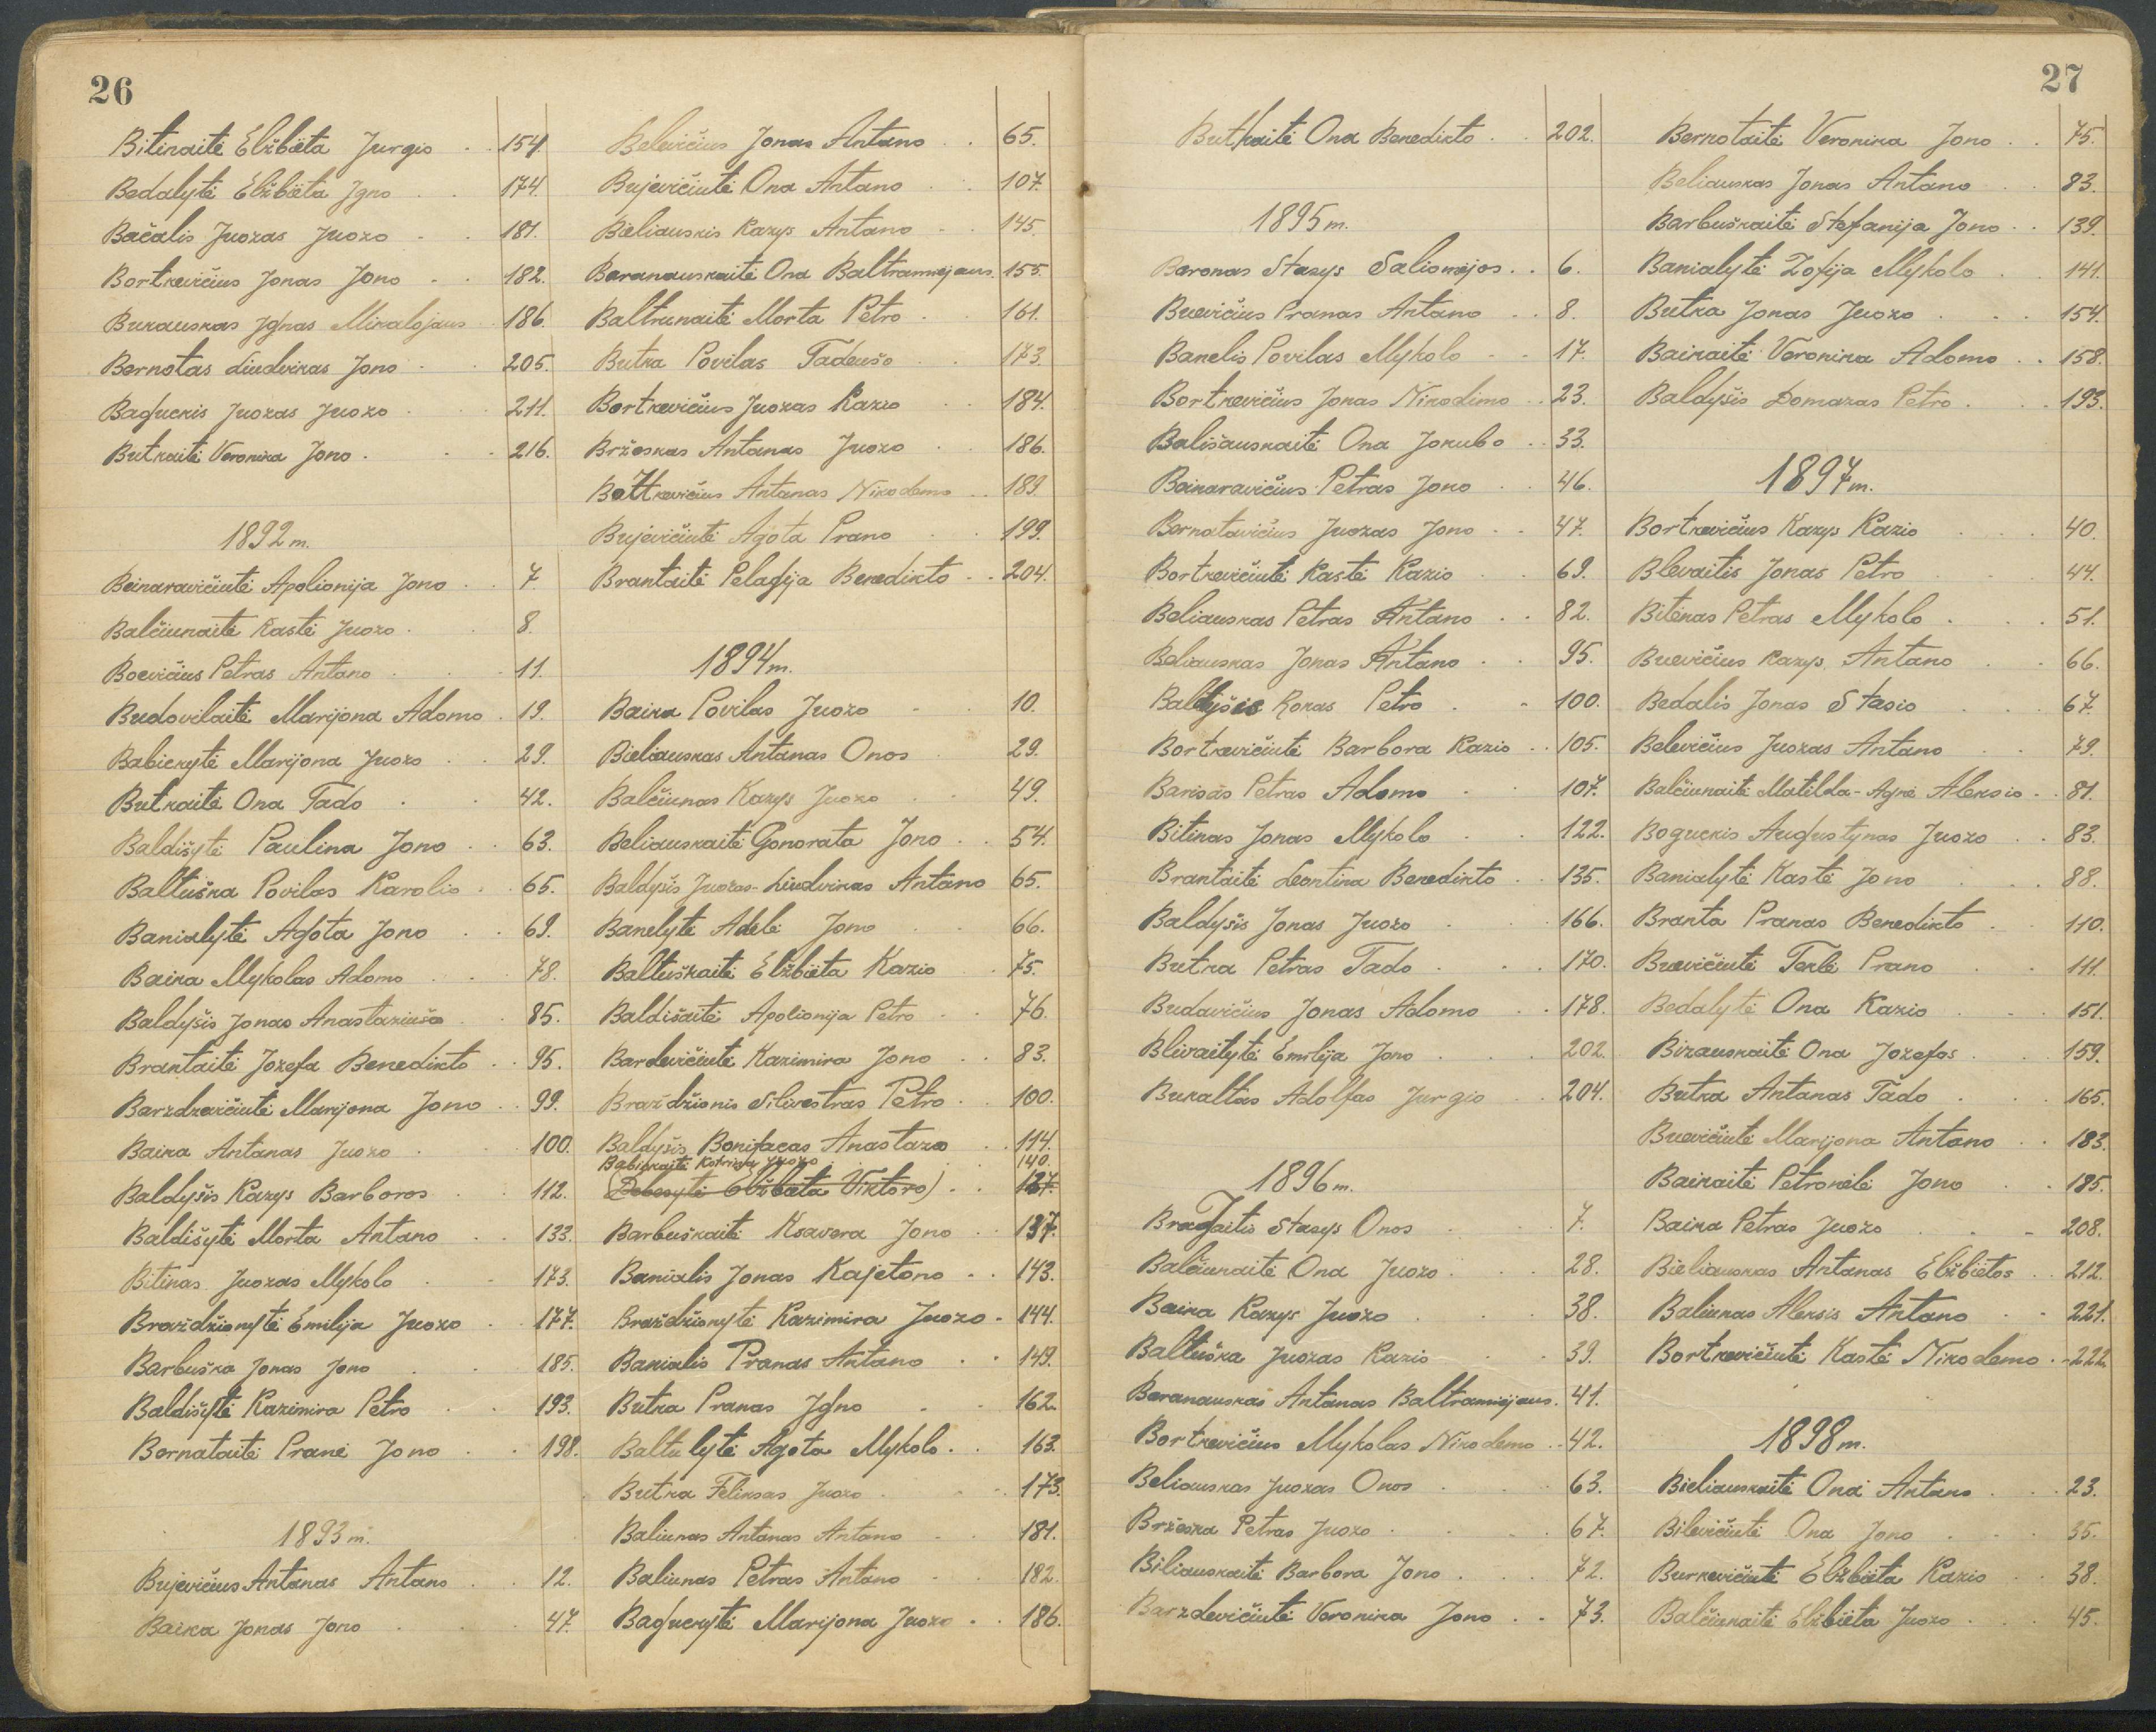 26
Bitinaitė Elžbieta Jurgio . . 154.
Bedalytė Elžbieta Igno . . 174.
Bačalis Juozas Juozo . . 181.
Bortkevičius Jonas Jono . . 182.
Bukauskas Ignas Mikalojaus . 186.
Bernotas Liudvikas Jono . . 205.
Baguckis Juozas Juozo . . 211.
Butkaitė Veronika Jono . . . 216.
1892 m.
Beinaravičiutė Apolionija Jono . . 7.
Balčiunaitė Kastė Juozo . . 8.
Boevičius Petras Antano . . . 11.
Budovilaitė Marijona Adomo . 19.
Babickytė Marijona Juozo . . 29.
Butkaitė Ona Tado . . 42.
Baldišytė Paulina Jono . . 63.
Baltuška Povilas Karolio . . 65.
Banialytė Agota Jono . . 69.
Baika Mykolas Adomo . . 78.
Baldyšis Jonas Anastaziušo . . 85.
Brantaitė Jozefa Benedikto . . 95.
Barzdzevičiutė Marijona Jono . . 99.
Baika Antanas Juozo . . 100.
Baldyšis Kazys Barboros . . 112.
Baldišytė Morta Antano . . 133.
Bitinas Juozas Mykolo . . 173.
Braždžionytė Emilija Juozo . . 177.
Barbuška Jonas Jono . . 185.
Baldišytė Kazimira Petro . . 193.
Bernataitė Pranė Jono . . 198.
1893 m.
Bujevičius Antanas Antano . . 12.
Baika Jonas Jono . . . 47.
Belevičius Jonas Antano . . 65.
Bujevičiutė Ona Antano . . 107.
Bieliauskis Kazys Antano . . 145.
Baranauskaitė Ona Baltramiejaus. 155.
Baltrunaitė Morta Petro . . 161.
Butka Povilas Tadeušo . . 173.
Bortkevičius Juozas Kazio . . 184.
Bržeskas Antanas Juozo . . 186.
Bortkevičius Antanas Nikodemo . . 189.
Bujevičiutė Agota Prano . . 199.
Brantaitė Pelagija Benedikto . . 204.
1894 m.
Baika Povilas Juozo . . 10.
Bieliauskas Antanas Onos . 29.
Balčiunas Kazys Juozo . . 49.
Beliauskaitė Gonorata Jono . . 54.
Baldyšis Juozas-Liudvikas Antano 65.
Banelytė Adelė Jono . . 66.
Baltuškaitė Elžbieta Kazio . 75.
Baldišaitė Apolionija Petro . . 76.
Bardevičiutė Kazimira Jono . . 83.
Braždžionis Silvestras Petro . . 100.
Baldyšis Bonifacas Anastazo . . 114.
Babickaitė Kotrina Juozo . . . 140.
(Debesytė Elžbieta Viktoro) . . 127.
Barbuškaitė Ksavera Jono . 137.
Banialis Jonas Kajetono . . 143.
Braždžionytė Kazimira Juozo . 144.
Banialis Pranas Antano . . 149.
Butka Pranas Igno . . 162.
Baltulytė Agota Mykolo . . 163.
Butka Feliksas Juozo . . . 173.
Baliunas Antanas Antano . . 181.
Baliunas Petras Antano . . 182.
Baguckytė Marijona Juozo . . 186.
27
Butkaitė Ona Benedikto . . 202.
1895 m.
Baronas Stasys Saliomėjos . . 6.
Buevičius Pranas Antano . . 8.
Banelis Povilas Mykolo . . 17.
Bortkevičius Jonas Nikodimo . . 23.
Bališauskaitė Ona Jokubo . . 33.
Beinaravičius Petras Jono . . 46.
Bernatavičius Juozas Jono . . 47.
Bortkevičiutė Kastė Kazio . . 69.
Beliauskas Petras Antano . . 82.
Beliauskas Jonas Antano . . 95.
Baldyšis Romas Petro . . 100.
Bortkevičiutė Barbora Kazio . . 105.
Barisas Petras Adomo . . 107.
Bitinas Jonas Mykolo . . 122.
Brantaitė Leontina Benedikto . . 135.
Baldyšis Jonas Juozo . . 166.
Butka Petras Tado . . . 170.
Budavičius Jonas Adomo . . 178.
Blivaitytė Emilija Jono . . . 202.
Bukaltas Adolfas Jurgio . . 204.
1896 m.
Bragaitis Stasys Onos . . . 7.
Balčiunaitė Ona Juozo . . . 28.
Baika Kazys Juozo . . . 38.
Baltuška Juozas Kazio . . 39.
Baranauskas Antanas Baltramiejaus. 41.
Bortkevičius Mykolas Nikodemo . . 42.
Beliauskas Juozas Onos . . . 63.
Bržeska Petras Juozo . . . . 67.
Biliauskaitė Barbora Jono . . . 72.
Barzdevičiutė Veronika Jono . . 73.
Bernotaitė Veronika Jono . . 75.
Beliauskas Jonas Antano . . 83.
Barbuškaitė Stefanija Jono . . 139.
Banialytė Zofija Mykolo . . 141.
Butka Jonas Juozo . . . 154.
Baikaitė Veronika Adomo . . 158.
Baldyšis Domazas Petro . . . 193.
1897 m.
Bortkevičius Kazys Kazio . . . 40.
Blevaitis Jonas Petro . . . 44.
Bitėnas Petras Mykolo . . . 51.
Buevičius Kazys Antano . . 66.
Bedalis Jonas Stasio . . . 67.
Belevičius Juozas Antano . . 79.
Balčiunaitė Matilda-Agnė Aleksio . . 81.
Boguckis Augustynas Juozo . 83.
Banialytė Kastė Jono . . . 88.
Branta Pranas Benedikto . . 110.
Buevičiutė Teklė Prano . . 111.
Bedalytė Ona Kazio . . . 151.
Bizauskaitė Ona Jozefos . . . 159.
Butka Antanas Tado . . . 165.
Buevičiutė Marijona Antano . . 183.
Baikaitė Petronėlė Jono . . 185.
Baika Petras Juozo . . . 208.
Bieliauskas Antanas Elžbietos . . 212.
Baliunas Aleksis Antano . . 221.
Bortkevičiutė Kastė Nikodemo . . 222.
1898 m.
Bieliauskaitė Ona Antano . . . 23.
Bilevičiutė Ona Jono . . . 35.
Burkevičiutė Elžbieta Kazio . . 38.
Balčiunaitė Elžbieta Juozo . . . 45.